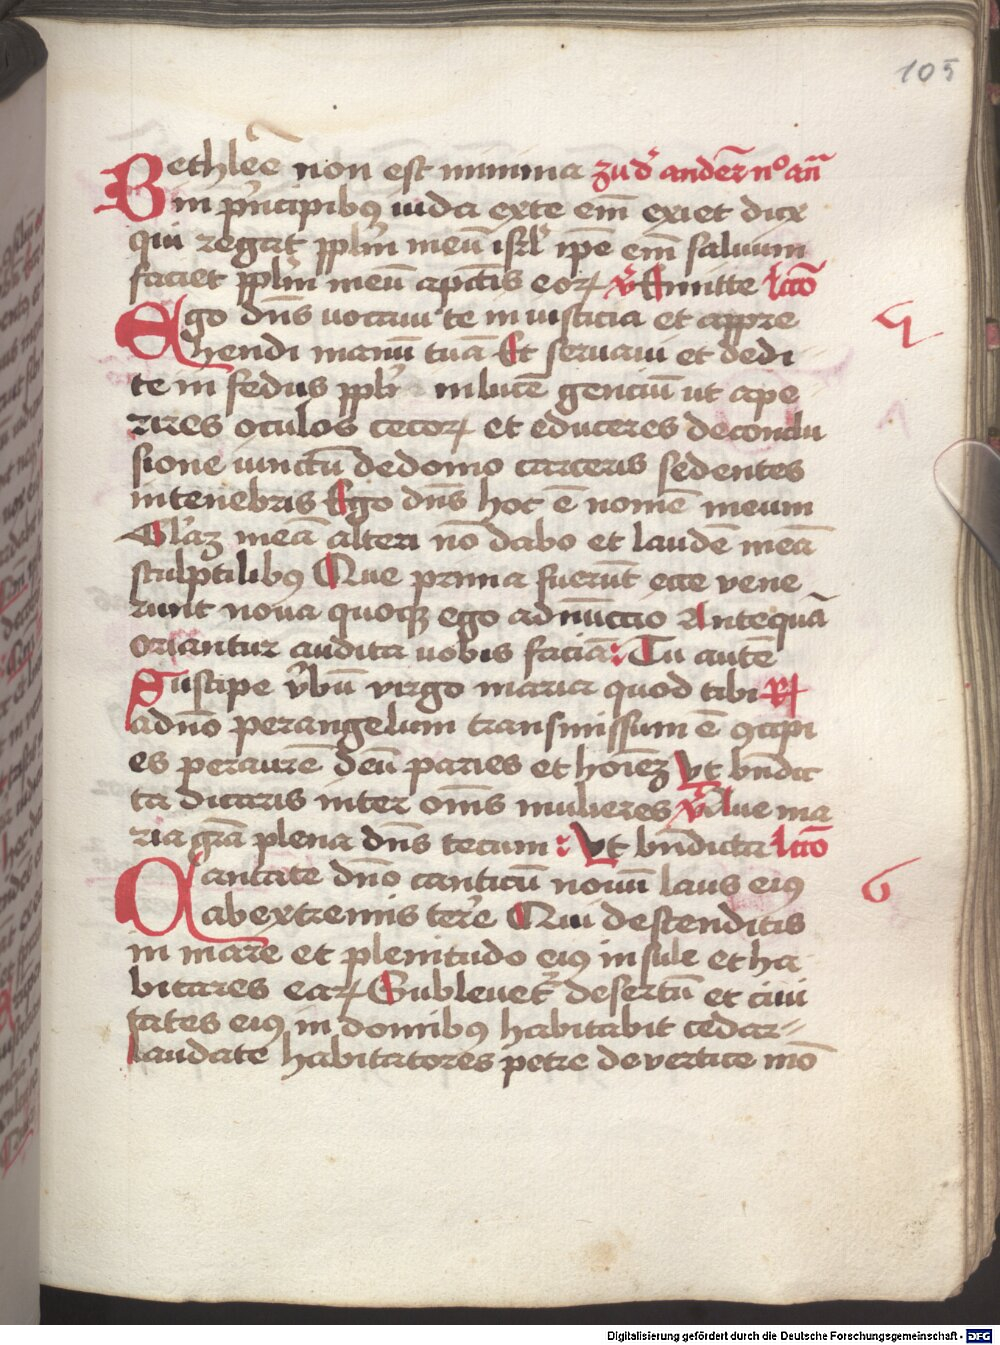 105
Bethlēe non est minima zu d' andern n° an̄
in p'ncipibꝯ iuda ex te em̄ exiet dux
qui regat pplm̄ meū isrl' ip̄e em̄ saluum
faciet pplm̄ meū a pctīs eoꝝ v̓ Emitte lc̄co
Ego dn̄s uocaui te in iusticia et appre 5
hendi manū tuā Et seruaui et dedi
te in fedus ppli in lucē genciū ut ape
rires oculos cecoꝝ et educeres de conclu
sione iunctū de domo carceris sedentes
in tenebris Ego dn̄s hoc ē nomē meum
Gl'aꝫ meā alteri nō dabo et laudē meā
sculptilibꝯ Que prima fuerūt ecce vene
runt noua quoqꝫ ego adnūccio Antequā
oriantur audita uobis faciā: Tu autē
Suscipe v̓bū virgo maria quod tibi ꝶ
a dn̄o per angelum transmissum ē ꝯcipi
es per aurē deū paries et hoīeꝫ Vt bn̄dic
ta dicaris inter om̄s mulieres v̓ Aue ma
ria gr̄a plena dn̄s tecum: Vt bn̄dicta lc̄co
Cantate dn̄o canticū nouū laus eiꝯ 6
ab extremis terre Qui descenditis
in mare et plenitudo eiꝯ insule et ha
bitares eaꝝ Subleuet' desertū et ciui
tates eiꝯ in domibꝯ habitabit cedar
laudate habitatores petre de vertice mō
Digitalisierung gefördert durch die Deutsche Forschungsgemeinschaft - DFG